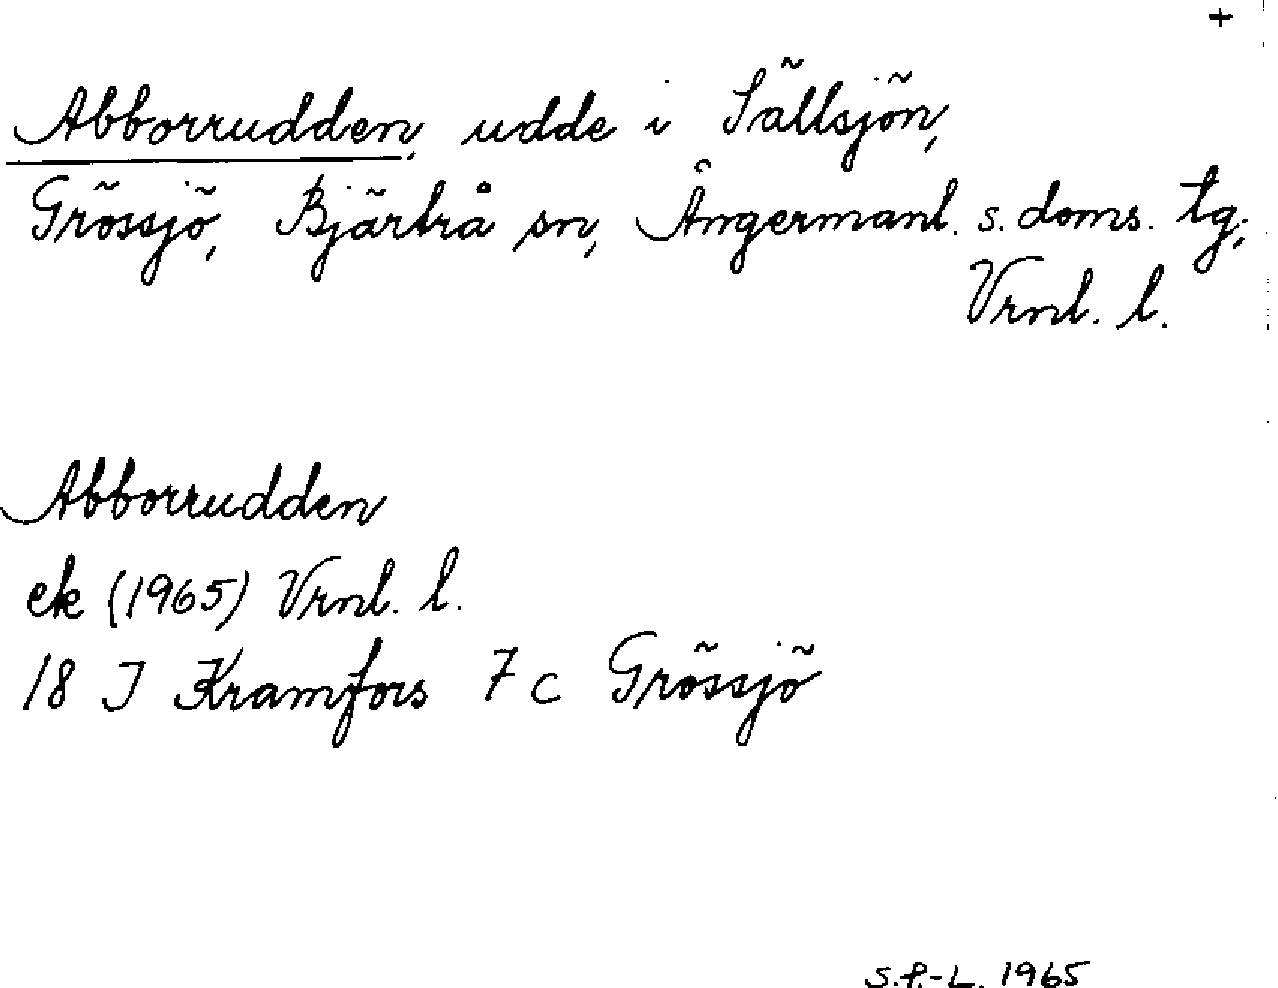 +
Abborrudden, udde i Sällsjön,
Grössjö, Bjärtrå sn, Ångermanl. s. doms. tg;
Vrnl. l.
Abborrudden
ek (1965) Vrnl. l.
18 J Kramfors 7 c Grössjö
S.P.-L. 1965